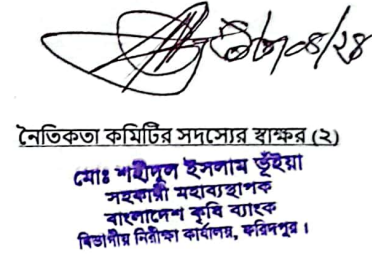 নৈতিকতা কমিটির সদস্যের স্বাক্ষর (২)
মোঃ শহীদুল ইসলাম ভূঁইয়া
সহকারী মহাব্যবস্থাপক
বাংলাদেশ কৃষি ব্যাংক
বিভাগীয় নিরীক্ষা কার্যালয়, ফরিদপুর।